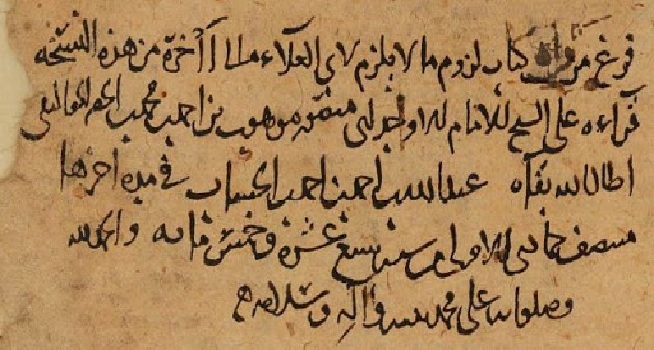 فرغ من قراءة كتاب لزوم ما لا يلزم لابي العلاء من اوله الى آخره من هذه النسخة
قراءة على الشيخ الامام الاوحد ابي منصور موهوب بن احمد بن محمد بن الخضر الجواليقي
اطال الله بقاه عبد الله بن احمد بن احمد بن احمد الخشاب في مدة آخرها
منتصف جمادى الاولى من سنة تسع عشرة وخمس مائة والحمد لله
وصلواته على محمد نبيه وآله وسلامه